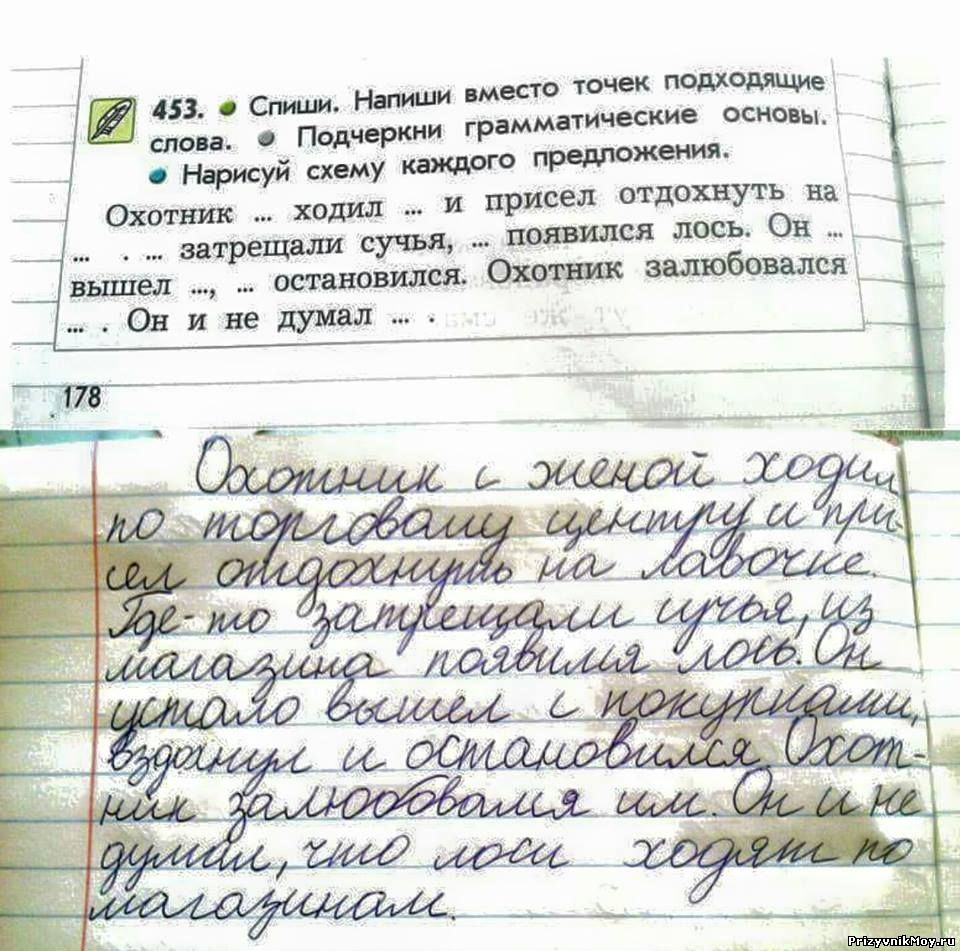 453. ● Спиши. Напиши вместо точек подходящие
слова. ● Подчеркни грамматические основы.
● Нарисуй схему каждого предложения.
Охотник ... ходил ... и присел отдохнуть на
... . ... затрещали сучья, ... появился лось. Он ...
вышел ..., ... остановился. Охотник залюбовался
... . Он и не думал ... .
178
Охотник с женой ходил
по торговому центру и при-
сел отдохнуть на лавочке.
Где-то затрещали сучья, из
магазина появился лось. Он
устало вышел с покупками,
вздохнул и остановился. Охот-
ник залюбовался им. Он и не
думал, что лоси ходят по
магазинам.
PrizyvnikMoy.ru